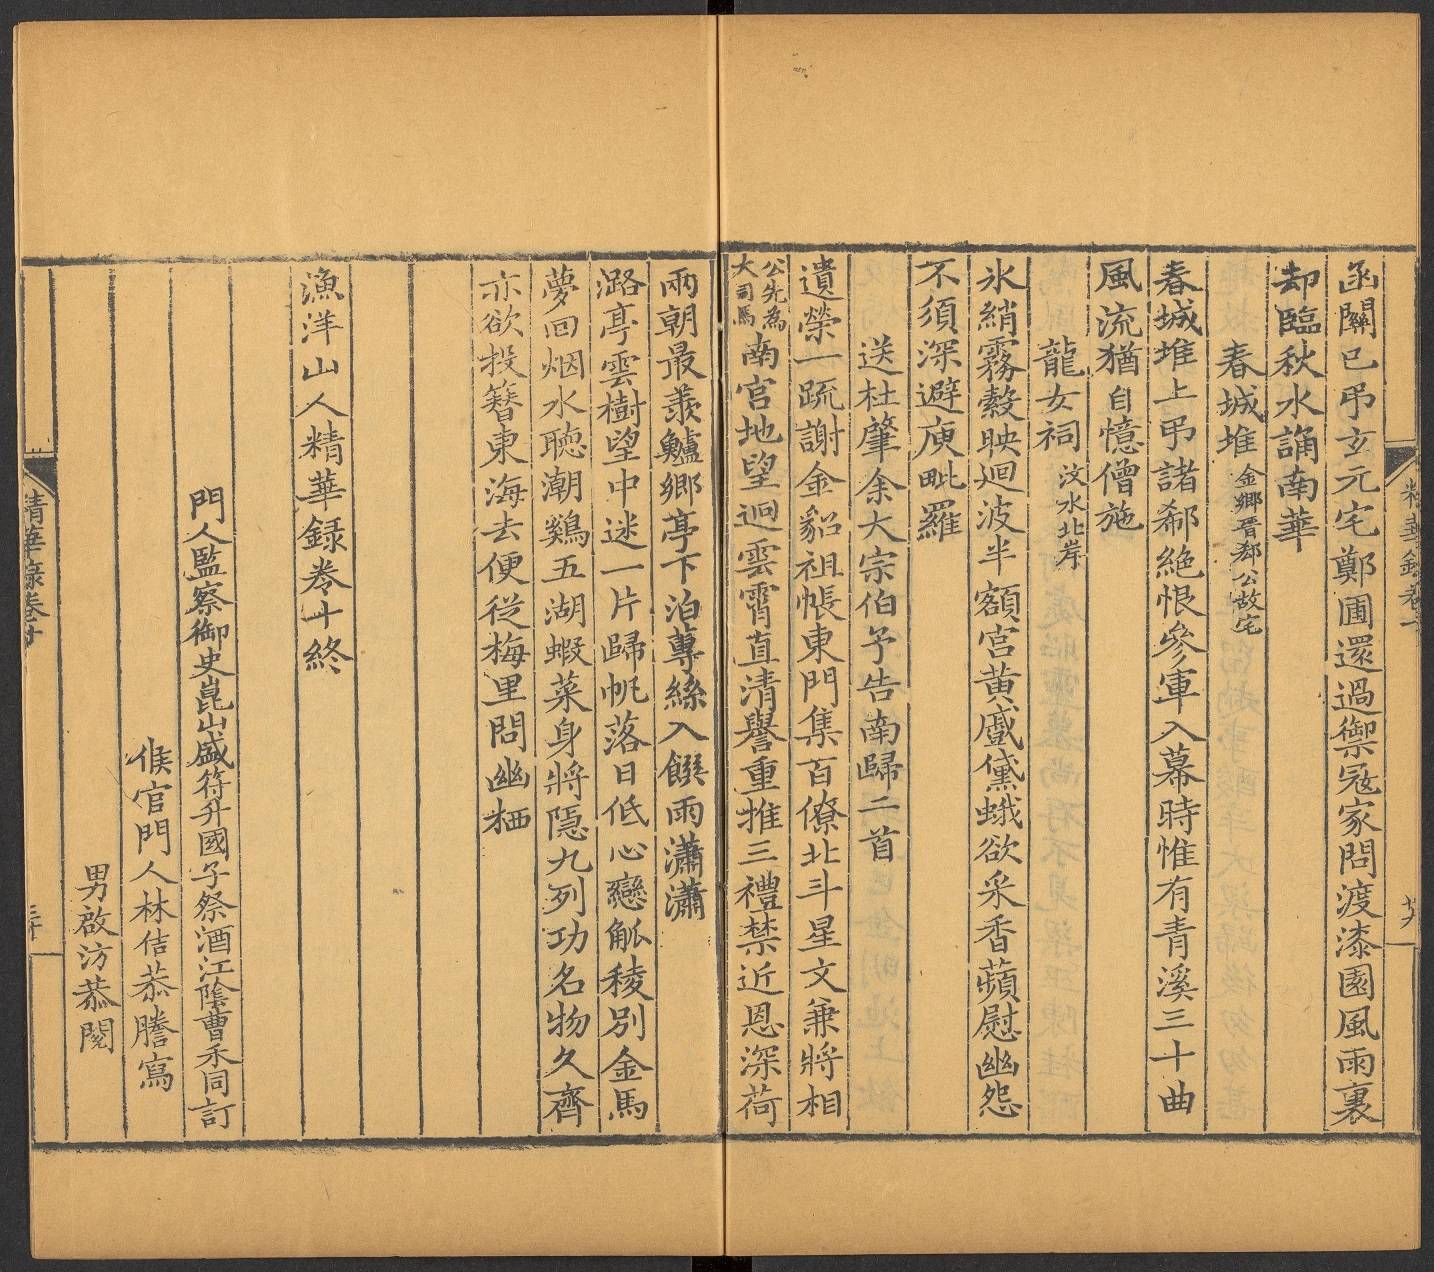 函關已弔玄元宅鄭圃還過禦宼家問渡漆園風雨裏
却臨秋水誦南華
春城堆金鄉晉郄公故宅
春城堆上弔諸郗絕恨參軍入幕時惟有青溪三十曲
風流猶自憶僧施
龍女祠汶水北岸
氷綃霧縠映迴波半額宮黃蹙黛蛾欲采香蘋慰幽怨
不須深避庾毗羅
送杜肇余大宗伯予告南歸二首
遺榮一疏謝金貂祖帳東門集百僚北斗星文兼將相
公先為大司馬南宮地望迥雲霄直清譽重推三禮禁近恩深荷
兩朝最羨鱸鄉亭下泊蓴絲入饌雨瀟瀟
潞亭雲樹望中迷一片歸帆落日低心戀觚稜別金馬
夢回烟水聽潮鷄五湖蝦菜身將隱九列功名物久齊
亦欲投簪東海去便從梅里問幽栖
漁洋山人精華録卷十終
門人監察御史崑山盛符升國子祭酒江陰曹禾同訂
候官門人林佶恭謄寫
男啟汸恭閱
精華録卷十